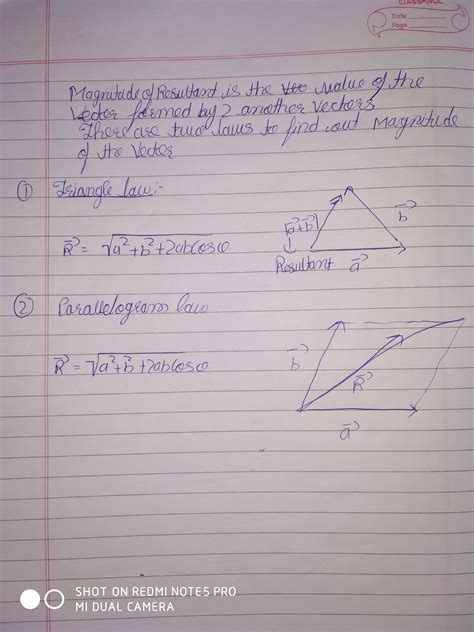 CLASSMATE
Date
Page
Magnitude of Resultant is the value of the
Vector formed by 2 another vectors
There are two laws to find out Magnitude
of the Vector
① Triangle law:-
R⃗ = √a²+b²+2abcosθ
|a⃗+b⃗|
b⃗
Resultant a⃗
② Parallelogram law
R⃗ = √a²+b²+2abcosθ
b⃗
R⃗
a⃗
SHOT ON REDMI NOTE 5 PRO
MI DUAL CAMERA